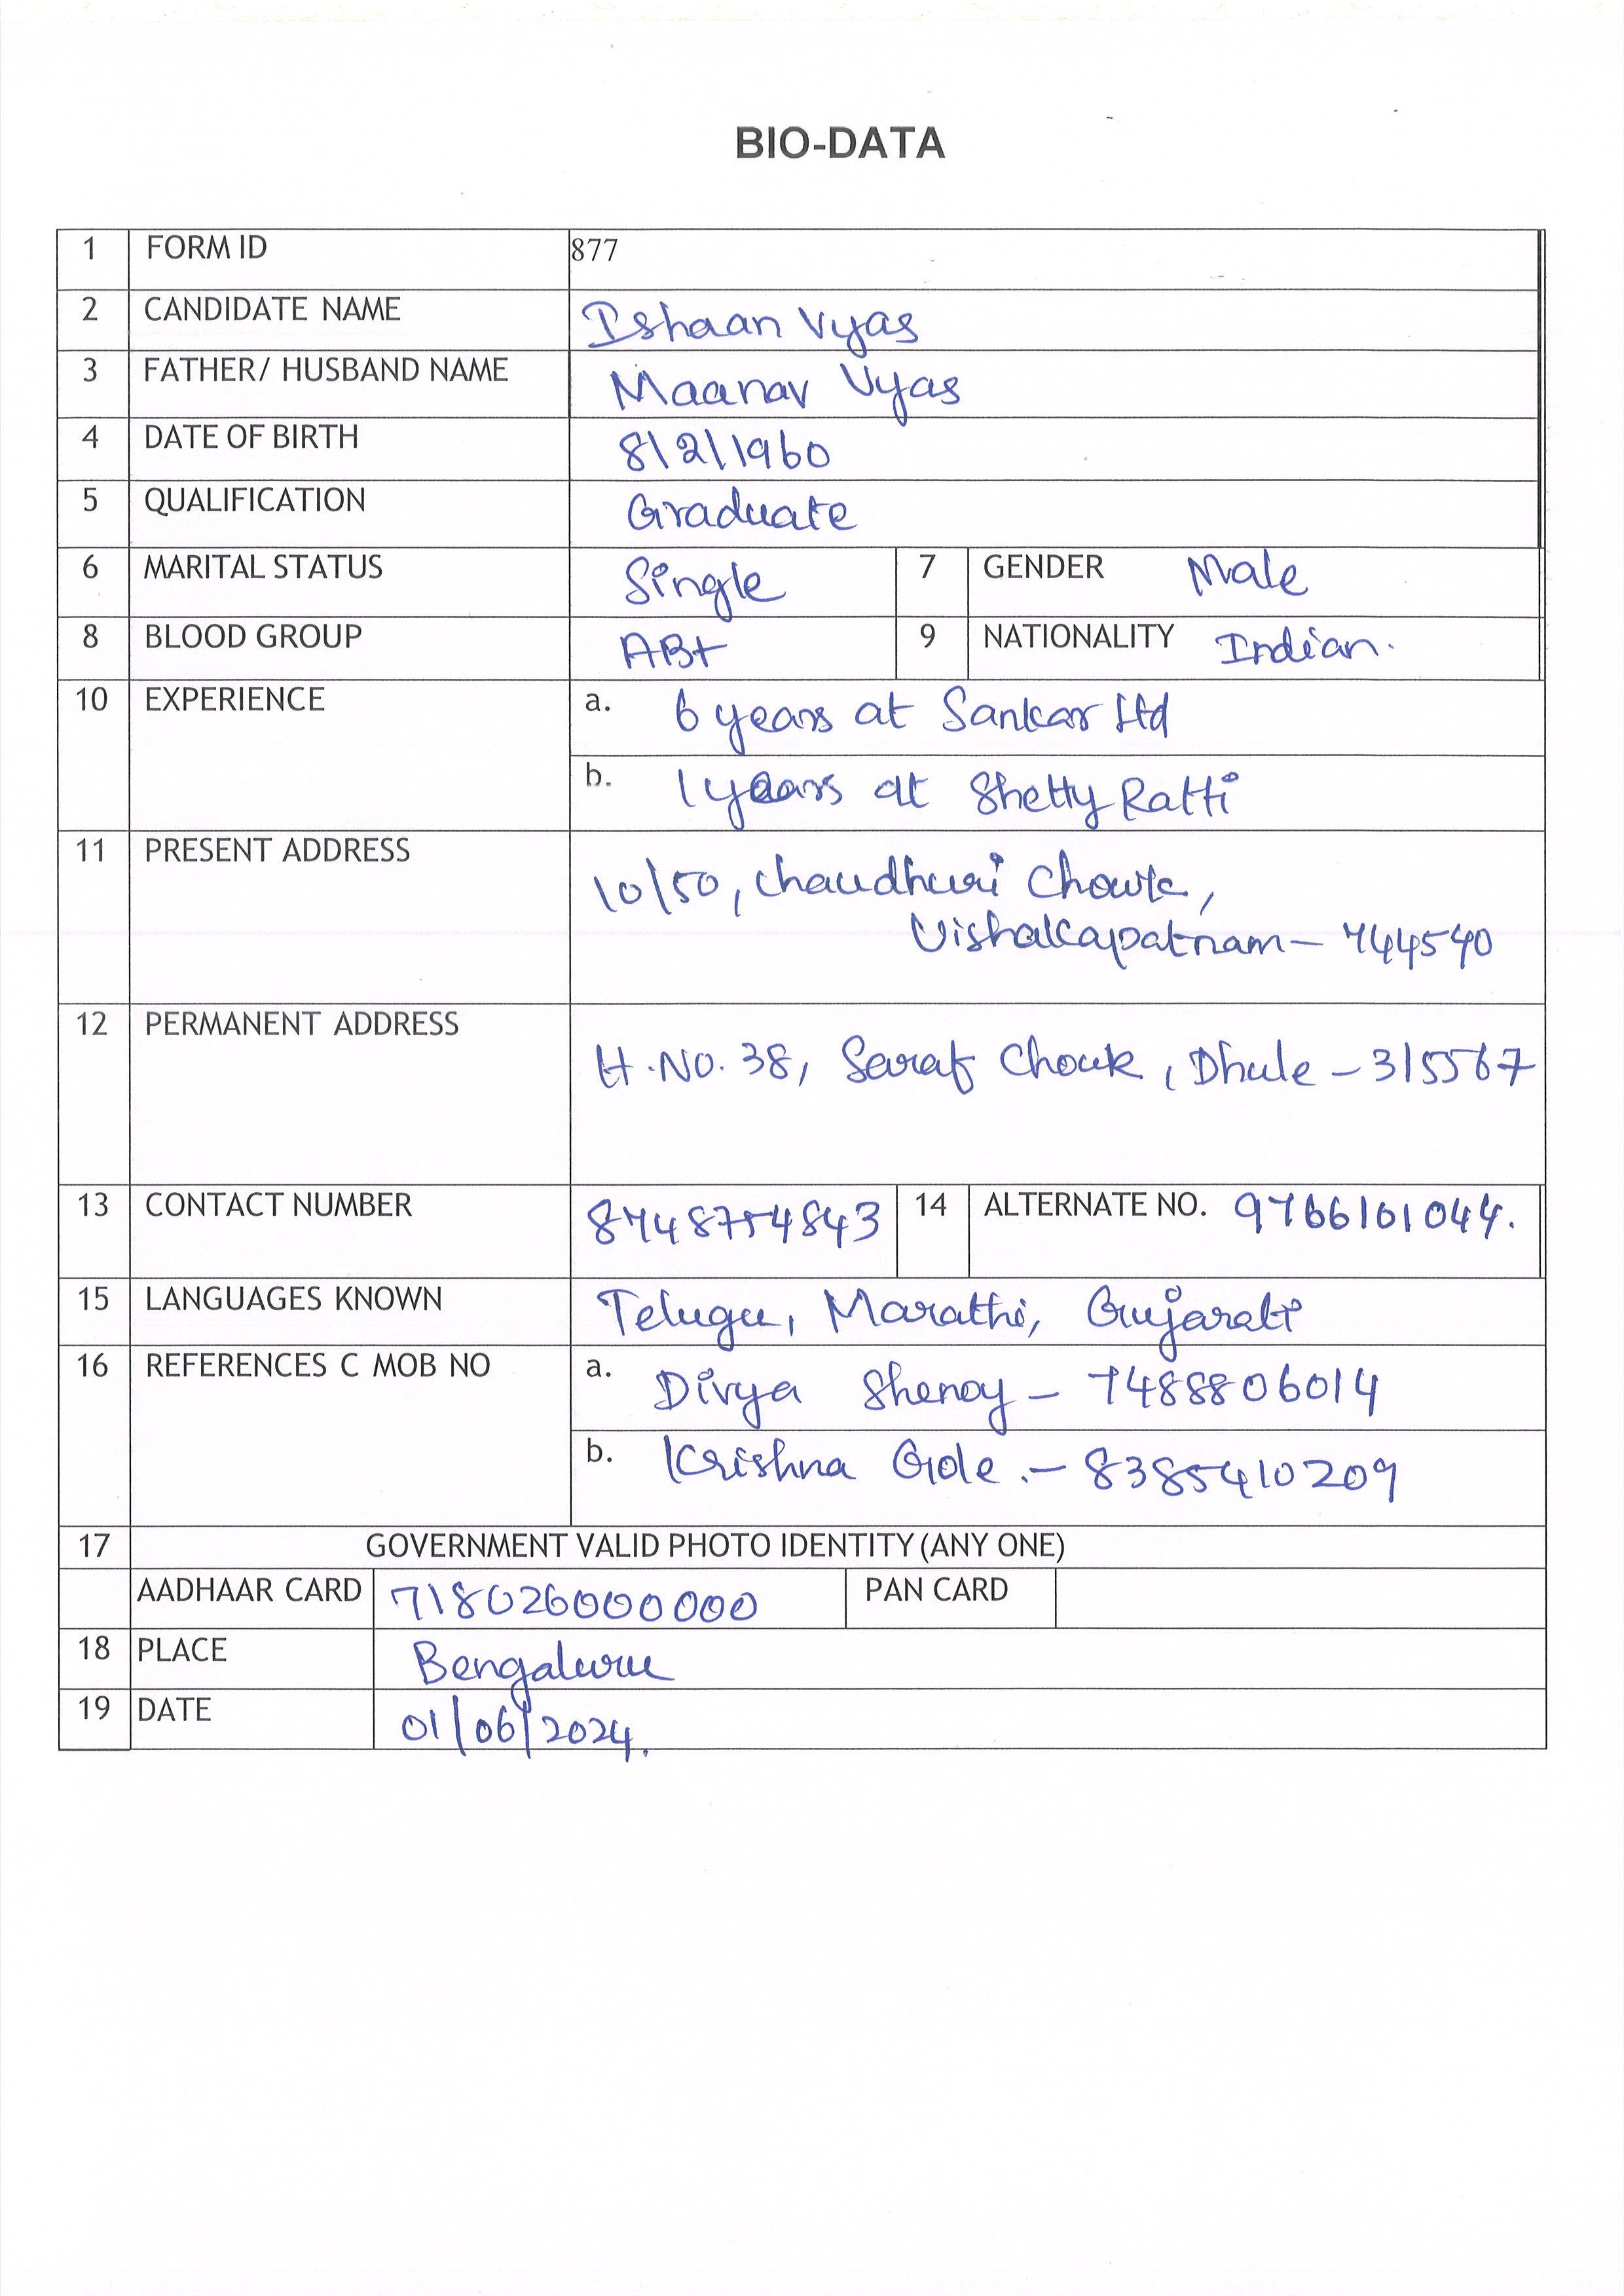 BIO-DATA
1 FORM ID 877
2 CANDIDATE NAME Ishaan Vyas
3 FATHER/ HUSBAND NAME Maanav Vyas
4 DATE OF BIRTH 8/2/1960
5 QUALIFICATION Graduate
6 MARITAL STATUS Single 7 GENDER Male
8 BLOOD GROUP AB+ 9 NATIONALITY Indian.
10 EXPERIENCE a. 6 years at Sankar Ltd
b. 1 years at Shetty Ratti
11 PRESENT ADDRESS 10/50, Chaudhuri Chowk,
Vishakapatnam - 744540
12 PERMANENT ADDRESS H.No. 38, Saraf Chowk, Dhule - 315567
13 CONTACT NUMBER 8748754843 14 ALTERNATE NO. 9766101044.
15 LANGUAGES KNOWN Telugu, Marathi, Gujarati
16 REFERENCES C MOB NO a. Divya Shenoy - 7488806014
b. Krishna Gole. - 8385410209
17 GOVERNMENT VALID PHOTO IDENTITY (ANY ONE)
AADHAAR CARD 718026000000 PAN CARD
18 PLACE Bengaluru
19 DATE 01/06/2024.